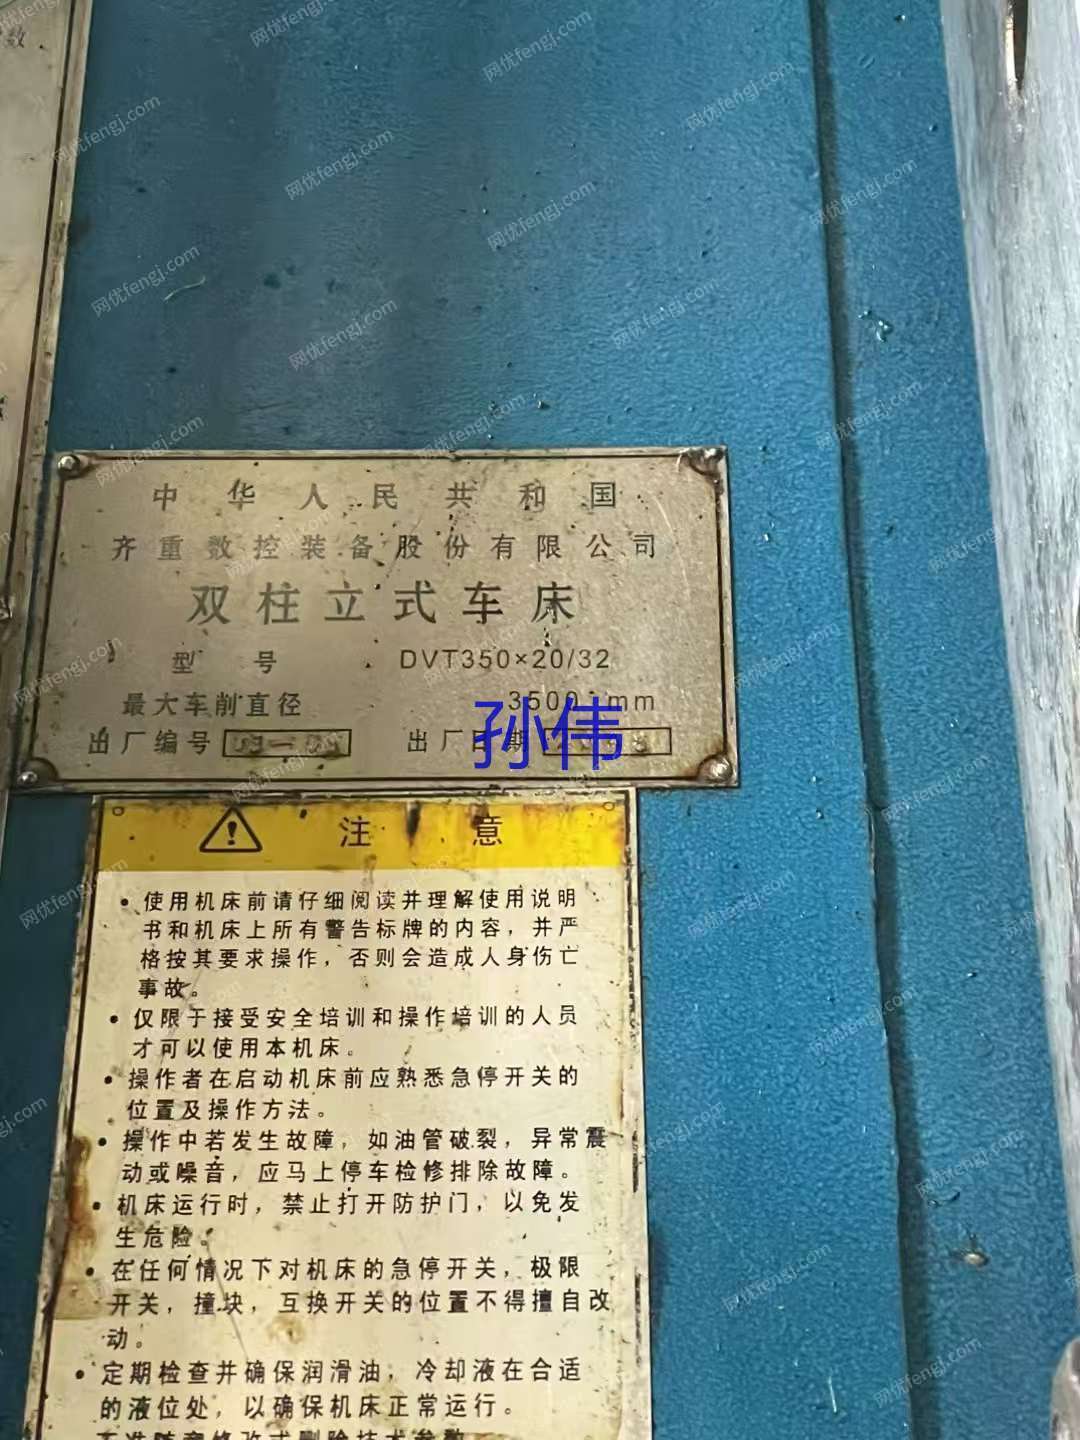 数
中华人民共和国
齐重数控装备股份有限公司
双柱立式车床
型号 DVT350×20/32
最大车削直径 3500 mm
出厂编号 出厂日期
孙伟
注意
• 使用机床前请仔细阅读并理解使用说明
书和机床上所有警告标牌的内容，并严
格按其要求操作，否则会造成人身伤亡
事故。
• 仅限于接受安全培训和操作培训的人员
才可以使用本机床。
• 操作者在启动机床前应熟悉急停开关的
位置及操作方法。
• 操作中若发生故障，如油管破裂，异常震
动或噪音，应马上停车检修排除故障。
• 机床运行时，禁止打开防护门，以免发
生危险。
• 在任何情况下对机床的急停开关，极限
开关，撞块，互换开关的位置不得擅自改
动。
• 定期检查并确保润滑油，冷却液在合适
的液位处，以确保机床正常运行。
不准随意修改或删除技术参数
网优fengj.com